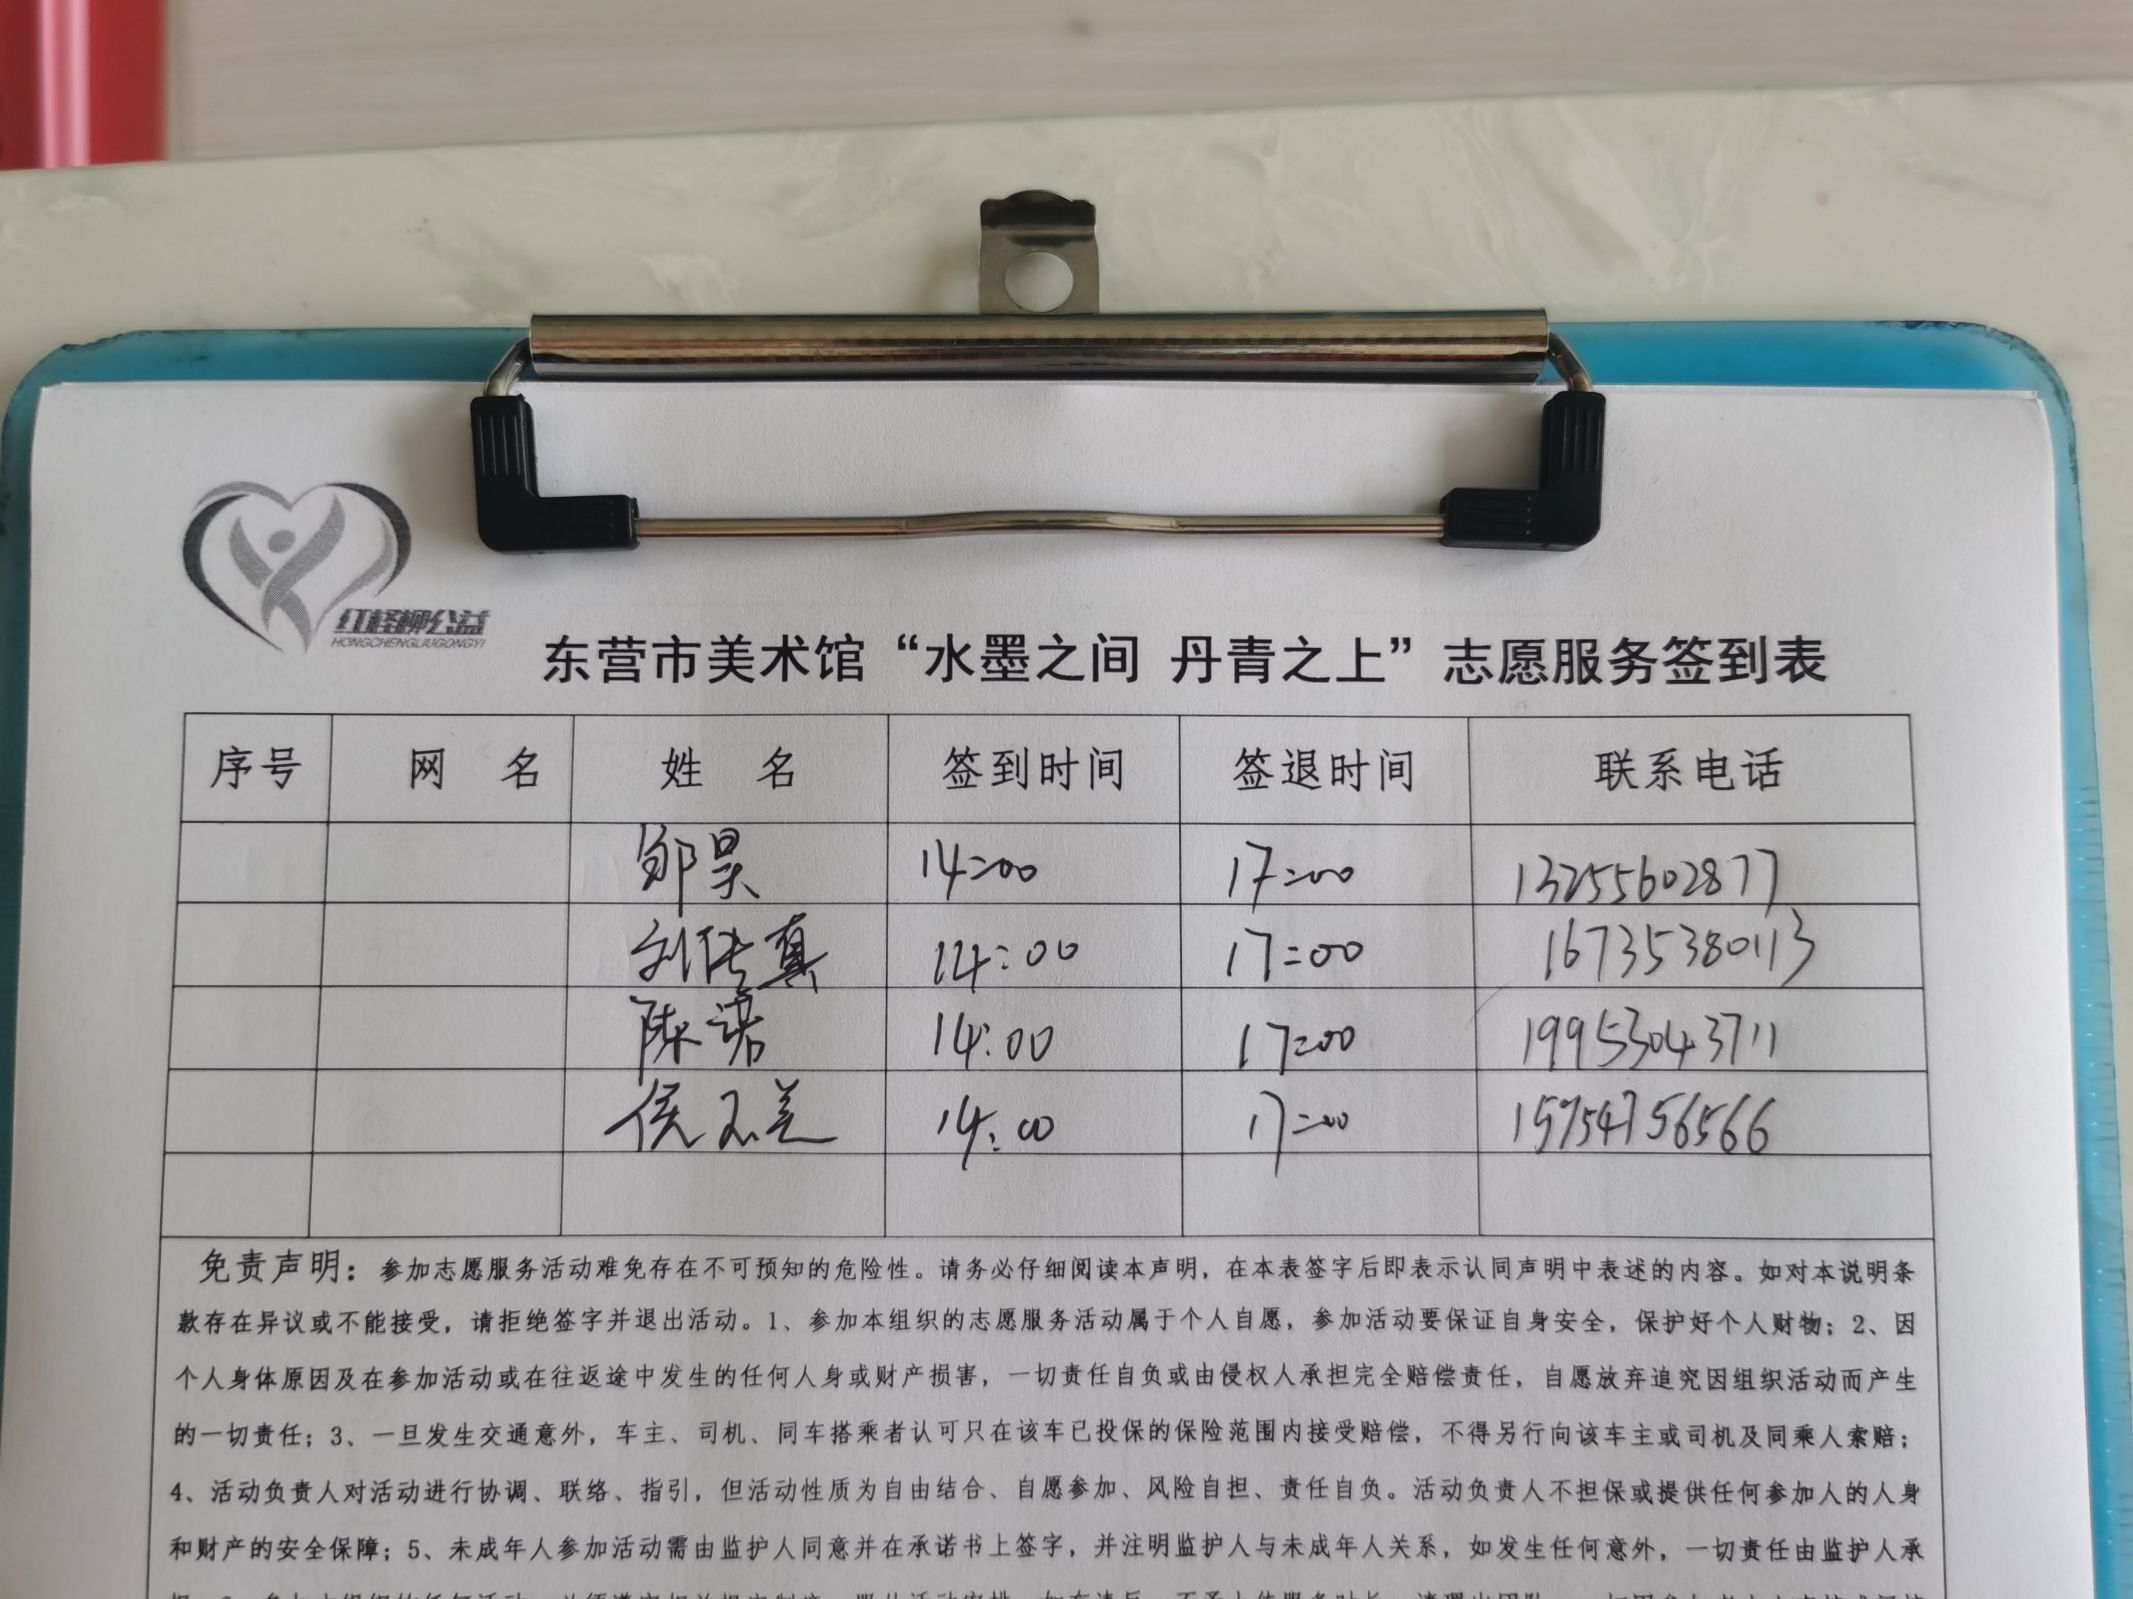 红柽柳公益
HONGCHENGLIUGONGYI
东营市美术馆“水墨之间 丹青之上”志愿服务签到表
序号 网 名 姓 名 签到时间 签退时间 联系电话
邹昊 14:00 17:00 13255602877
刘传真 14:00 17:00 16735380113
陈诺 14:00 17:00 19953043711
侯 14:00 17:00 15754756566
免责声明：参加志愿服务活动难免存在不可预知的危险性。请务必仔细阅读本声明，在本表签字后即表示认同声明中表述的内容。如对本说明条
款存在异议或不能接受，请拒绝签字并退出活动。1、参加本组织的志愿服务活动属于个人自愿，参加活动要保证自身安全，保护好个人财物；2、因
个人身体原因及在参加活动或在往返途中发生的任何人身或财产损害，一切责任自负或由侵权人承担完全赔偿责任，自愿放弃追究因组织活动而产生
的一切责任；3、一旦发生交通意外，车主、司机、同车搭乘者认可只在该车已投保的保险范围内接受赔偿，不得另行向该车主或司机及同乘人索赔；
4、活动负责人对活动进行协调、联络、指引，但活动性质为自由结合、自愿参加、风险自担、责任自负。活动负责人不担保或提供任何参加人的人身
和财产的安全保障；5、未成年人参加活动需由监护人同意并在承诺书上签字，并注明监护人与未成年人关系，如发生任何意外，一切责任由监护人承